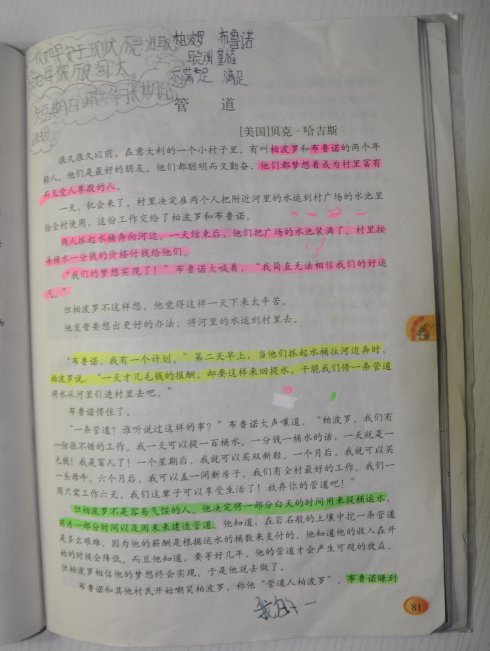 柏波罗 布鲁诺
聪明 勤
不满足 满足
管 道
[美国]贝克·哈吉斯
很久很久以前，在意大利的一个小村子里，有叫柏波罗和布鲁诺的两个年
轻人，他们是最好的朋友。他们都聪明而又勤奋，他们都梦想着成为村里富有
而又受人尊敬的人。
一天，机会来了，村里决定雇两个人把附近河里的水运到村广场的水池里
给全村使用，这份工作交给了柏波罗和布鲁诺。
两人抓起水桶奔向河边，一天结束后，他们把广场的水池装满了，村里按
每桶水一分钱的价格付钱给他们。
“我们的梦想实现了！”布鲁诺大喊着，“我简直无法相信我们的好运
气。”
但柏波罗不这样想，他觉得这样一天下来太辛苦。
他发誓要想出更好的办法，将河里的水运到村里去。
“布鲁诺，我有一个计划，”第二天早上，当他们抓起水桶往河边奔时，
柏波罗说，“一天才几毛钱的报酬，却要这样来回提水，干脆我们修一条管道
将水从河里引进村里去吧。”
布鲁诺愣住了。
“一条管道？谁听说过这样的事？”布鲁诺大声嚷道，“柏波罗，我们有
一份很不错的工作。我一天可以提一百桶水，一分钱一桶水的话，一天就是一
元钱！我是富人了！一个星期后，我就可以买双新鞋。一个月后，我就可以买
一头母牛。六个月后，我可以盖一间新房子。我们有全村最好的工作。我们一
周只需工作六天，我们这辈子可以享受生活了！放弃你的管道吧！”
但柏波罗不是容易气馁的人，他决定将一部分白天的时间用来提桶运水，
用另一部分时间以及周末来建造管道。他知道，在岩石般的土壤中挖一条管道
是多么艰难。因为他的薪酬是根据运水的桶数来支付的，他知道他的收入在开
始的时候会降低。而且他知道，要等好几年，他的管道才会产生可观的效益。
但柏波罗相信他的梦想终会实现，于是他就去做了。
布鲁诺和其他村民开始嘲笑柏波罗，称他“管道人柏波罗”，布鲁诺赚到
81